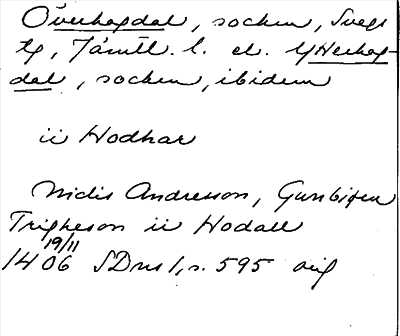 Överhogdal, socken, Svegs
tg, Jämtl. l. el. Ytterhog-
dal, socken, ibidem
ii Hodhar
Nidis Andresson, Gunbiørn
Trigheson ii Hodall
19/11
1406 SD ns 1, s. 595 orig